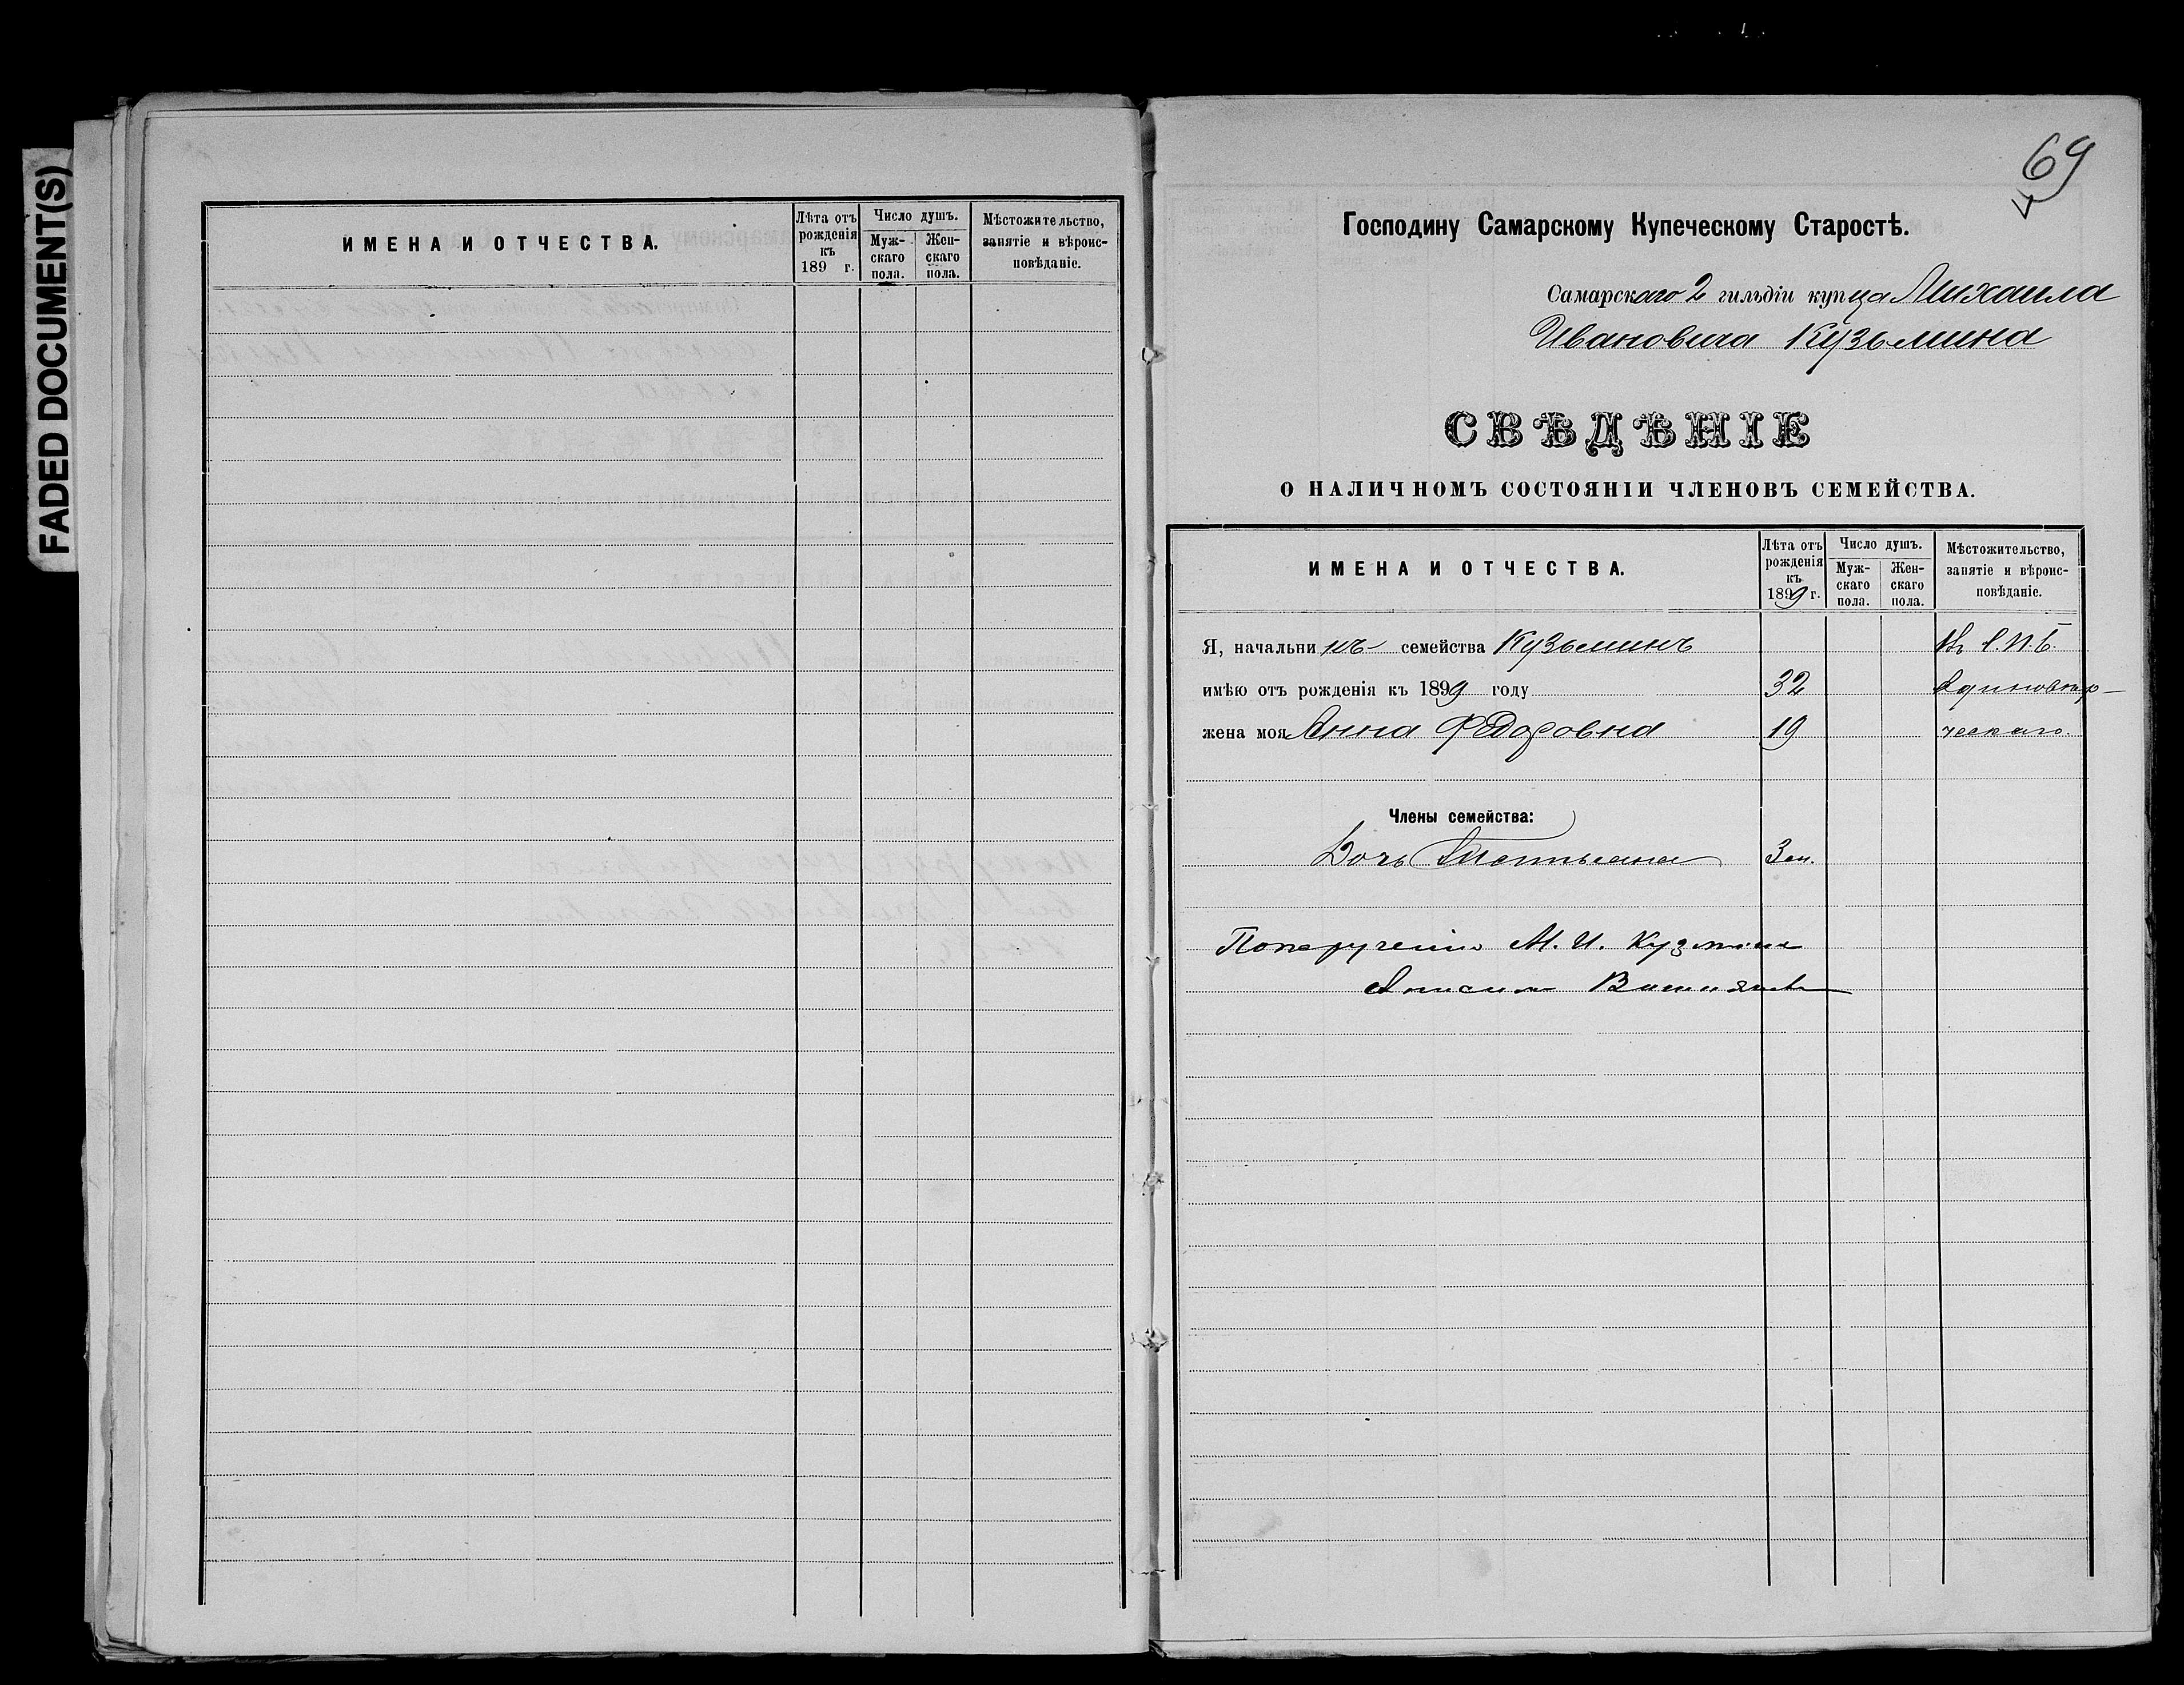 FADED DOCUMENT(S)
ИМЕНА И ОТЧЕСТВА.
Лѣта отъ рожденія къ 189 г.
Число душъ.
Мужскаго пола.
Женскаго пола.
Мѣстожительство, занятіе и вѣроисповѣданіе.
69
Господину Самарскому Купеческому Старостѣ.
Самарскаго 2 гильдіи купца Михаила
Ивановича Кузьмина
СВѢДѢНІЕ
О НАЛИЧНОМЪ СОСТОЯНІИ ЧЛЕНОВЪ СЕМЕЙСТВА.
ИМЕНА И ОТЧЕСТВА.
Лѣта отъ рожденія къ 1899 г.
Число душъ.
Мужскаго пола.
Женскаго пола.
Мѣстожительство, занятіе и вѣроисповѣданіе.
Я, начальникъ семейства Кузьминъ
имѣю отъ рожденія къ 1899 году 32
жена моя Анна Федоровна 19
Члены семейства:
Дочь Татьяна 3 м.
М. И. Кузмина